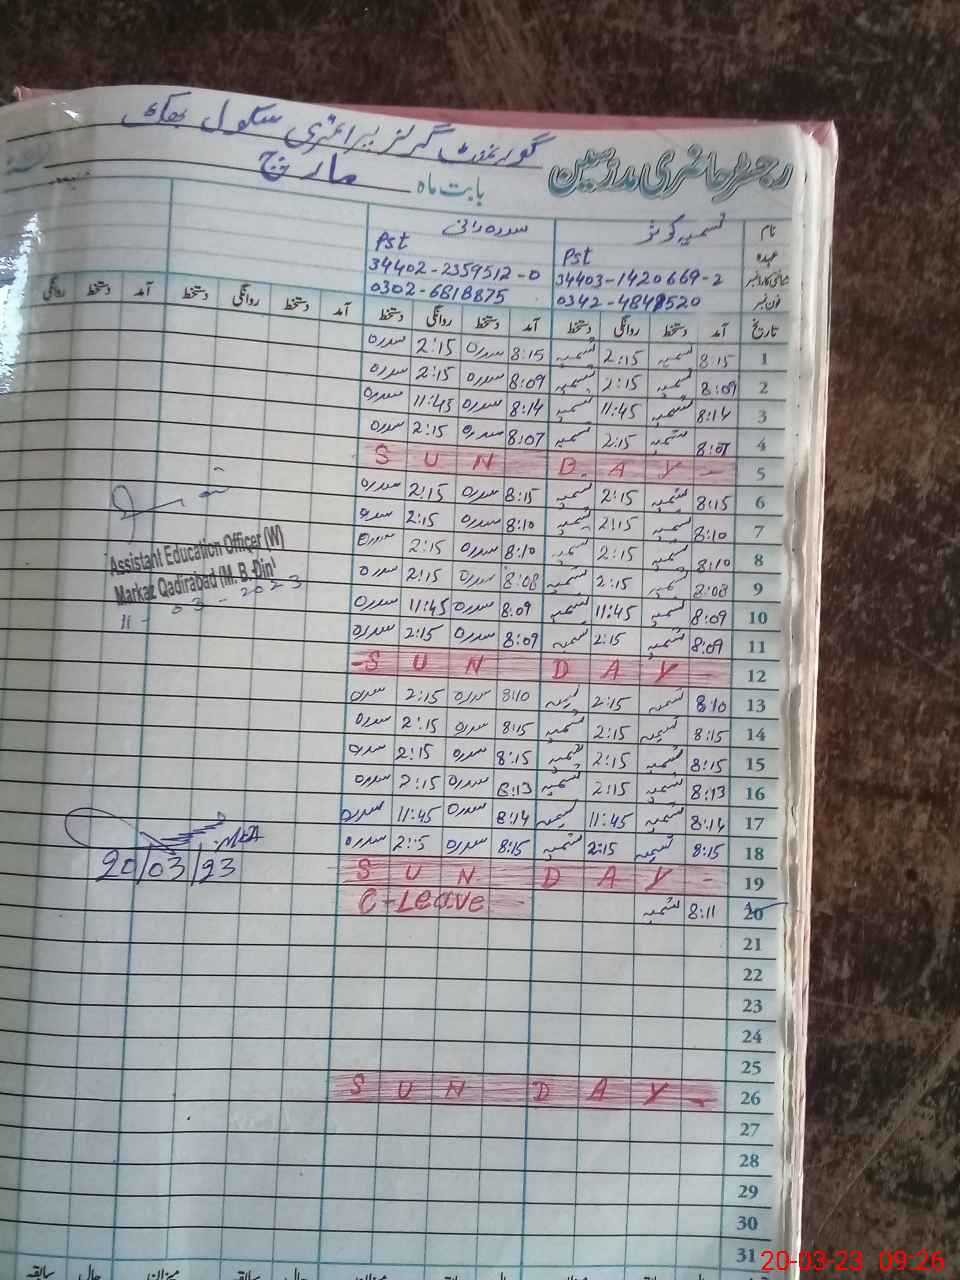 گورنمنٹ گرلز پرائمری سکول بھکی
رجسٹر حاضری مدرسین بابت ماہ مارچ
نام
عہدہ Pst Pst
شناختی کارڈ نمبر 34403-1420669-2 34402-2359512-0
فون نمبر 0342-4848520 0302-6818875
تاریخ آمد دستخط روانگی دستخط آمد دستخط روانگی دستخط آمد دستخط روانگی دستخط آمد دستخط روانگی
1 8:15 تسمیہ 2:15 تسمیہ 8:15 سدرہ 2:15 سدرہ
2 8:09 تسمیہ 2:15 تسمیہ 8:09 سدرہ 2:15 سدرہ
3 8:14 تسمیہ 11:45 تسمیہ 8:14 سدرہ 11:45 سدرہ
4 8:07 تسمیہ 2:15 تسمیہ 8:07 سدرہ 2:15 سدرہ
5 S U N D A Y -
6 8:15 تسمیہ 2:15 تسمیہ 8:15 سدرہ 2:15 سدرہ
7 8:10 تسمیہ 2:15 تسمیہ 8:10 سدرہ 2:15 سدرہ
8 8:10 تسمیہ 2:15 تسمیہ 8:10 سدرہ 2:15 سدرہ
9 2:08 تسمیہ 2:15 تسمیہ 8:08 سدرہ 2:15 سدرہ
10 8:09 تسمیہ 11:45 تسمیہ 8:09 سدرہ 11:45 سدرہ
11 8:09 تسمیہ 2:15 تسمیہ 8:09 سدرہ 2:15 سدرہ
12 - S U N D A Y -
13 8:10 تسمیہ 2:15 تسمیہ 8:10 سدرہ 2:15 سدرہ
14 8:15 تسمیہ 2:15 تسمیہ 8:15 سدرہ 2:15 سدرہ
15 8:15 تسمیہ 2:15 تسمیہ 8:15 سدرہ 2:15 سدرہ
16 8:13 تسمیہ 2:15 تسمیہ 8:13 سدرہ 2:15 سدرہ
17 8:14 تسمیہ 11:45 تسمیہ 8:14 سدرہ 11:45 سدرہ
18 8:15 تسمیہ 2:15 تسمیہ 8:15 سدرہ 2:15 سدرہ
19 S U N D A Y -
20 8:11 تسمیہ C-Leave -
21
22
23
24
25
26 S U N D A Y -
27
28
29
30
31
Assistant Education Officer (W)
Markaz Qadirabad (M. B. Din)
11-03-2023
20/03/23
میزان حال سابقہ میزان حال سابقہ
20-03-23 09:26